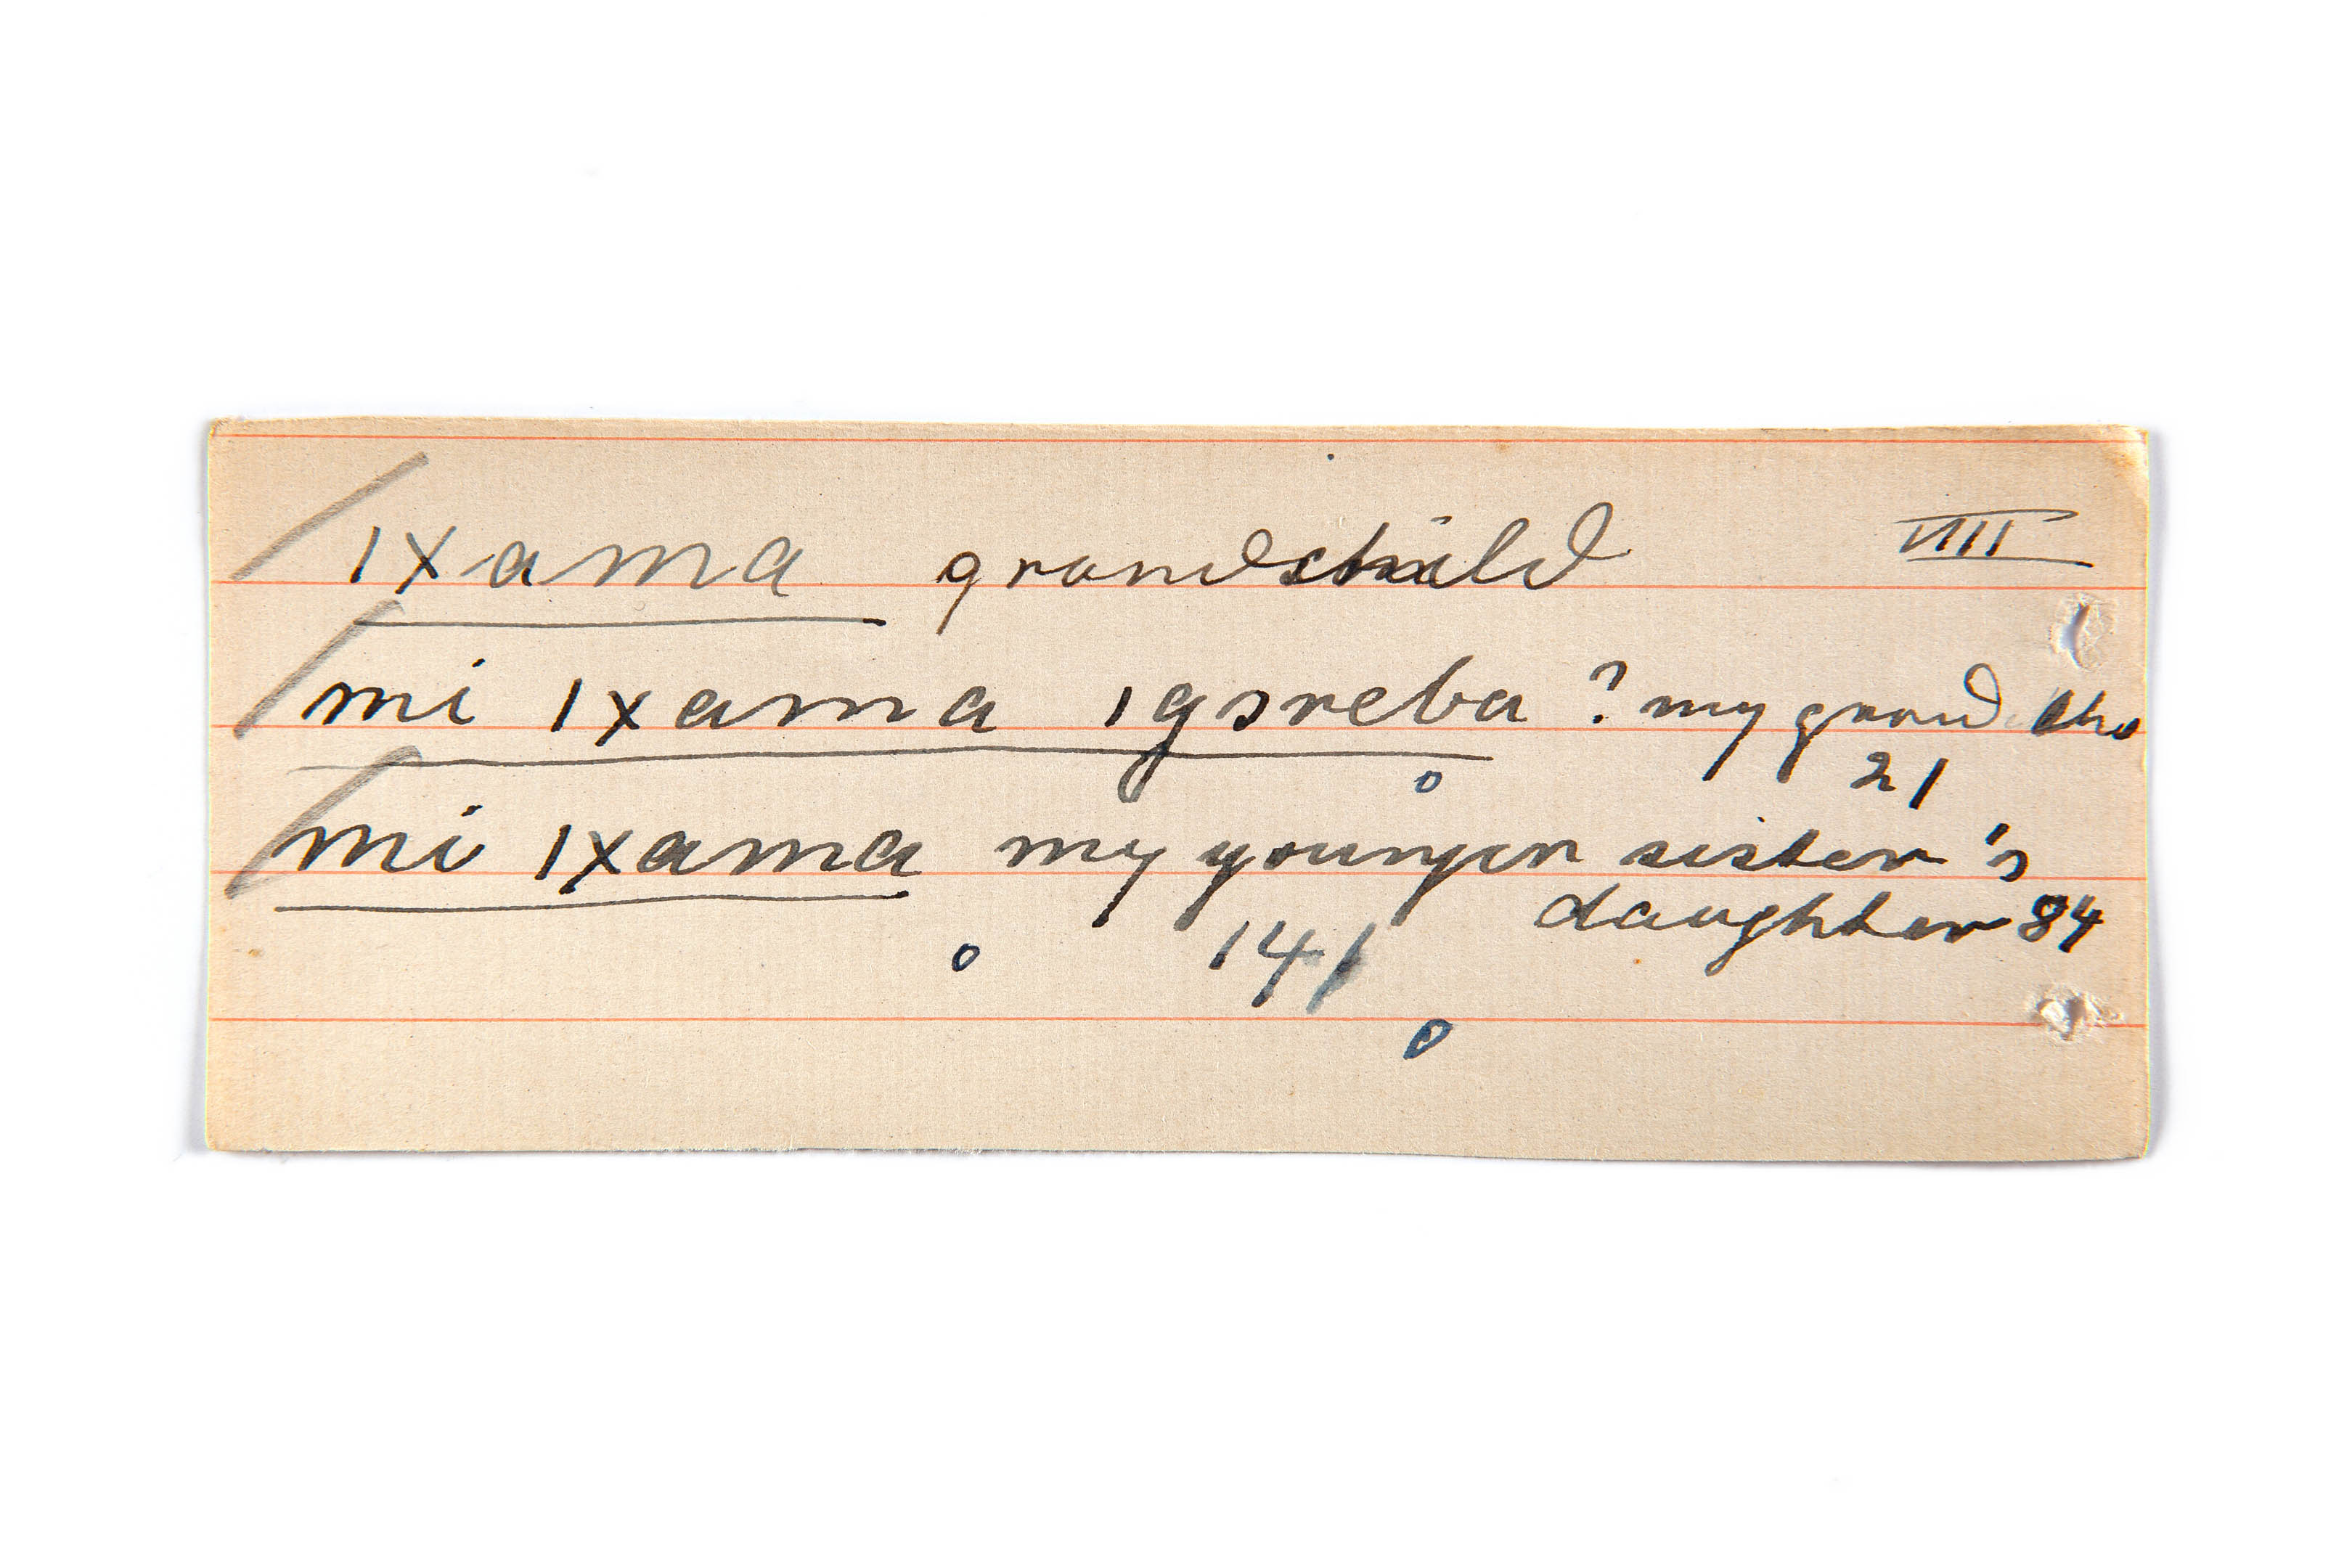 ıxama grandchild VIII
mi ıxama ıgsreba ? my grand cho
21
mi ıxama my younger sister's
daughter 84
141